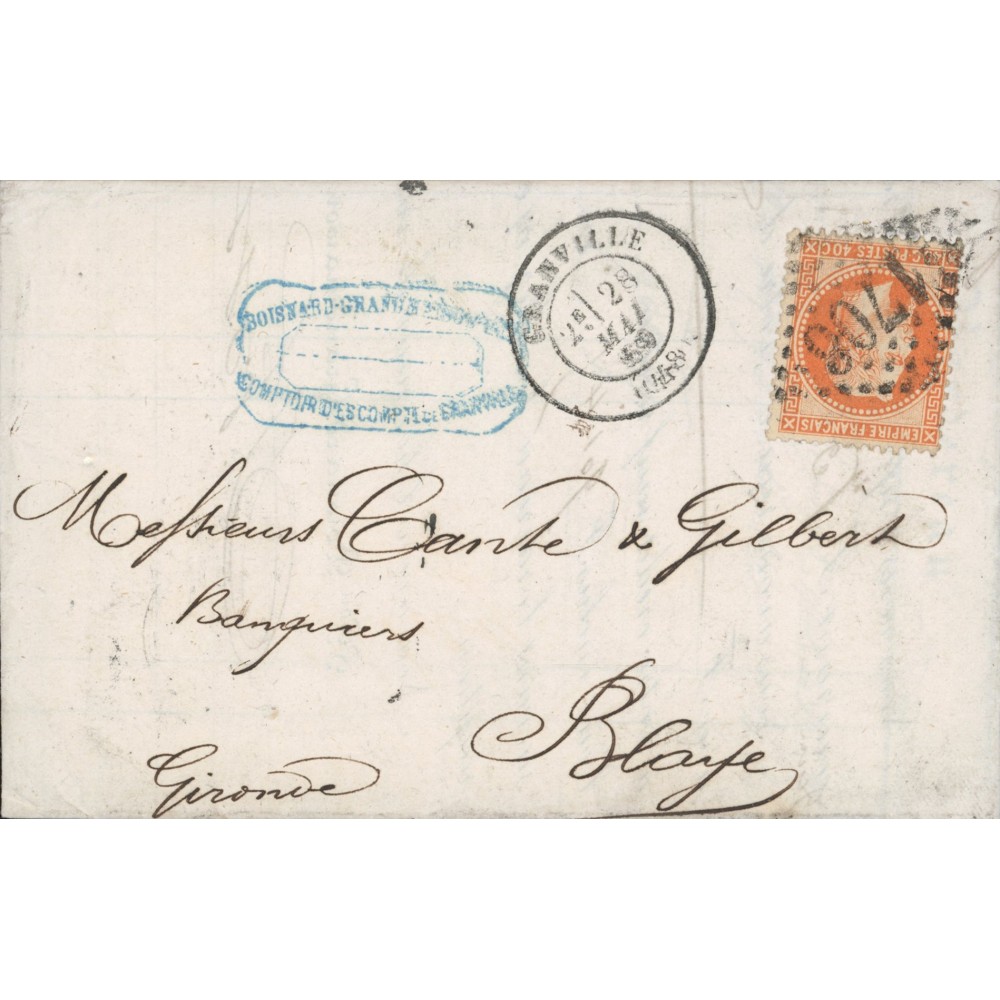 BOISNARD-GRAND
COMPTOIR D'ESCOMPTE
GRANVILLE
2E
28
MAI
(48)
EMPIRE FRANCAIS
POSTES 40C
Messieurs Cante & Gilbert
Banquiers
Blaye
Gironde